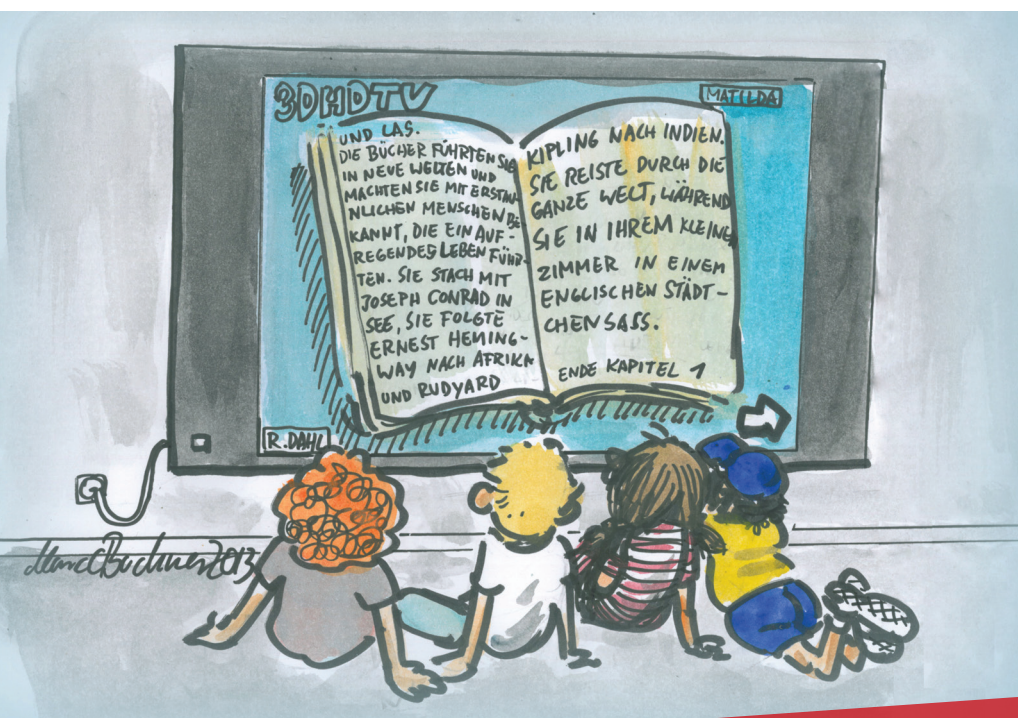 3DHDTV
MATILDA
UND LAS.
DIE BÜCHER FÜHRTEN SIE
IN NEUE WELTEN UND
MACHTEN SIE MIT ERSTAU-
NLICHEN MENSCHEN BE
KANNT, DIE EIN AUF-
REGENDES LEBEN FÜHR-
TEN. SIE STACH MIT
JOSEPH CONRAD IN
SEE, SIE FOLGTE
ERNEST HEMING-
WAY NACH AFRIKA
UND RUDYARD
KIPLING NACH INDIEN.
SIE REISTE DURCH DIE
GANZE WELT, WÄHREND
SIE IN IHREM KLEINEN
ZIMMER IN EINEM
ENGLISCHEN STÄDT-
CHEN SASS.
ENDE KAPITEL 1
R. DAHL
2013